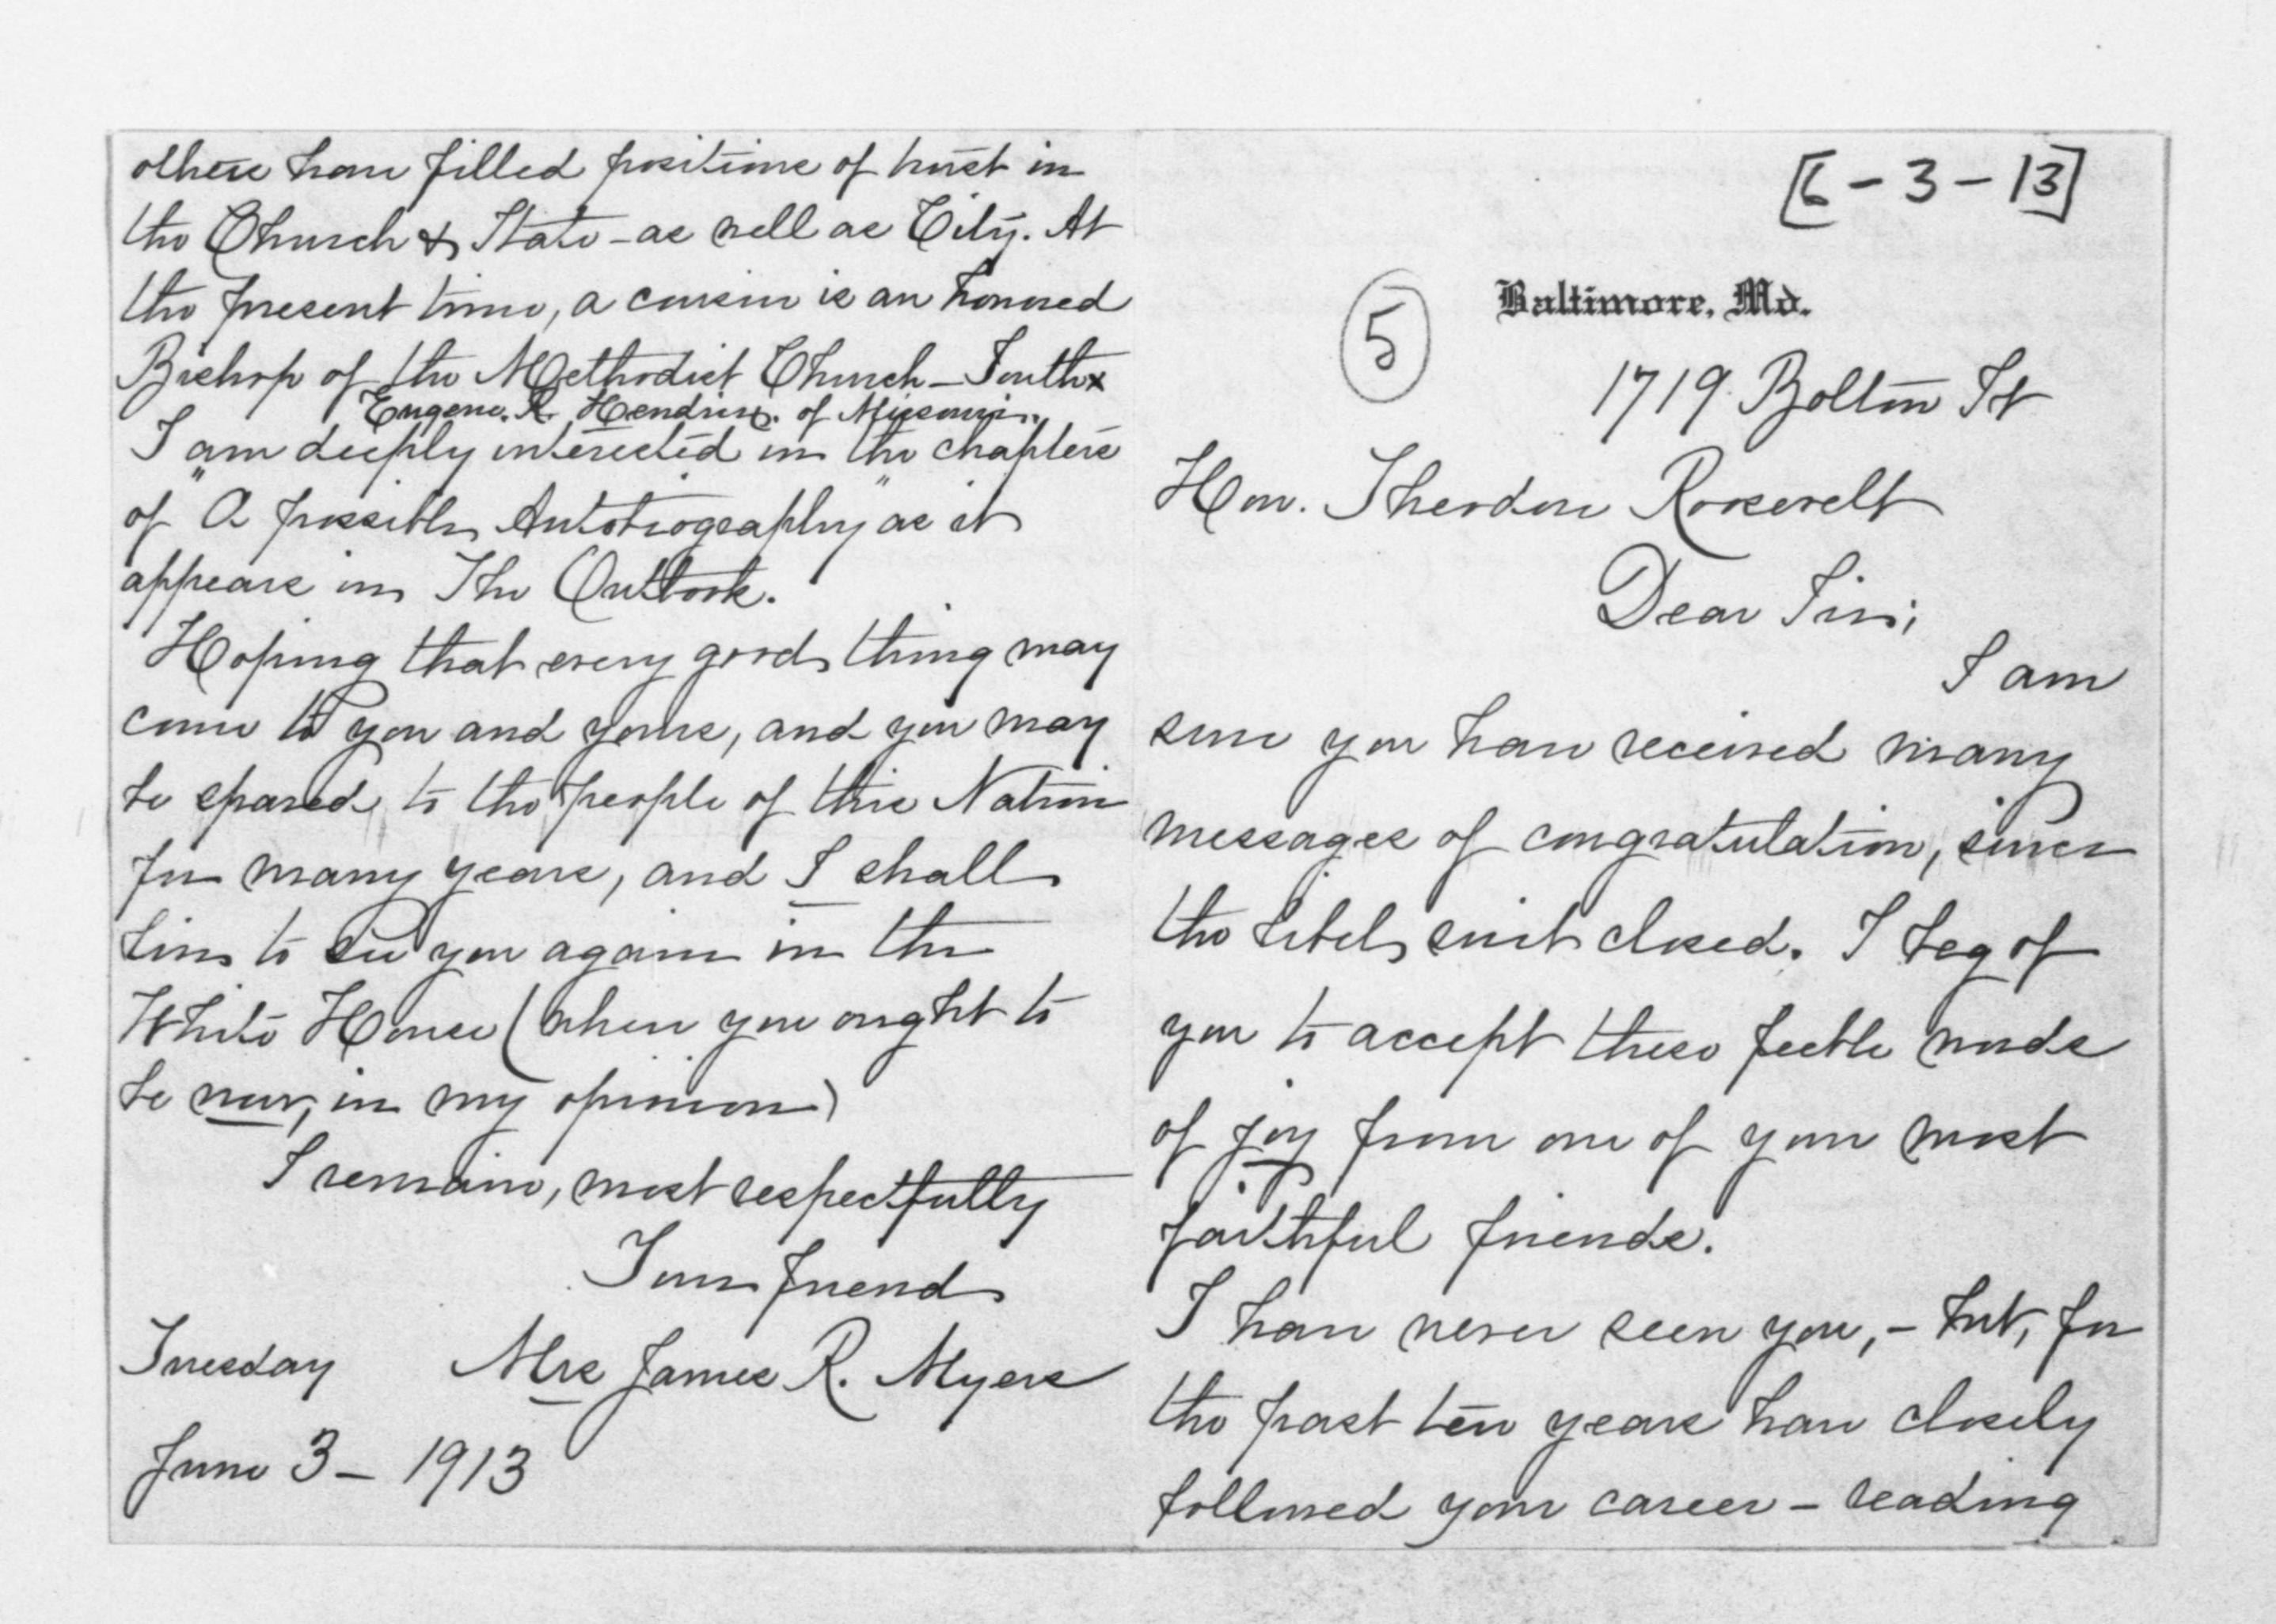 [6-3-13]
5
Baltimore, Md.
1719 Bolton St
Hon. Theodore Roosevelt
Dear Sir;
I am
sure you have received many
messages of congratulation, since
the libel suit closed. I beg of
you to accept these feeble words
of joy from one of your most
faithful friends.
I have never seen you, - but, for
the past ten years have closely
followed your career - reading
others have filled positions of trust in
the Church & State - as well as City. At
the present time, a cousin is an honored
Bishop of the Methodist Church - South x
Eugene. R. Hendrix. of Missouri.
I am deeply interested in the chapters
of "A possible Autobiography" as it
appears in The Outlook.
Hoping that every good thing may
come to you and yours, and you may
be spared to the people of this Nation
for many years, and I shall
live to see you again in the
White House (where you ought to
be now, in my opinion)
I remain, most respectfully
Your friend
Tuesday Mrs James R. Myers
June 3 - 1913